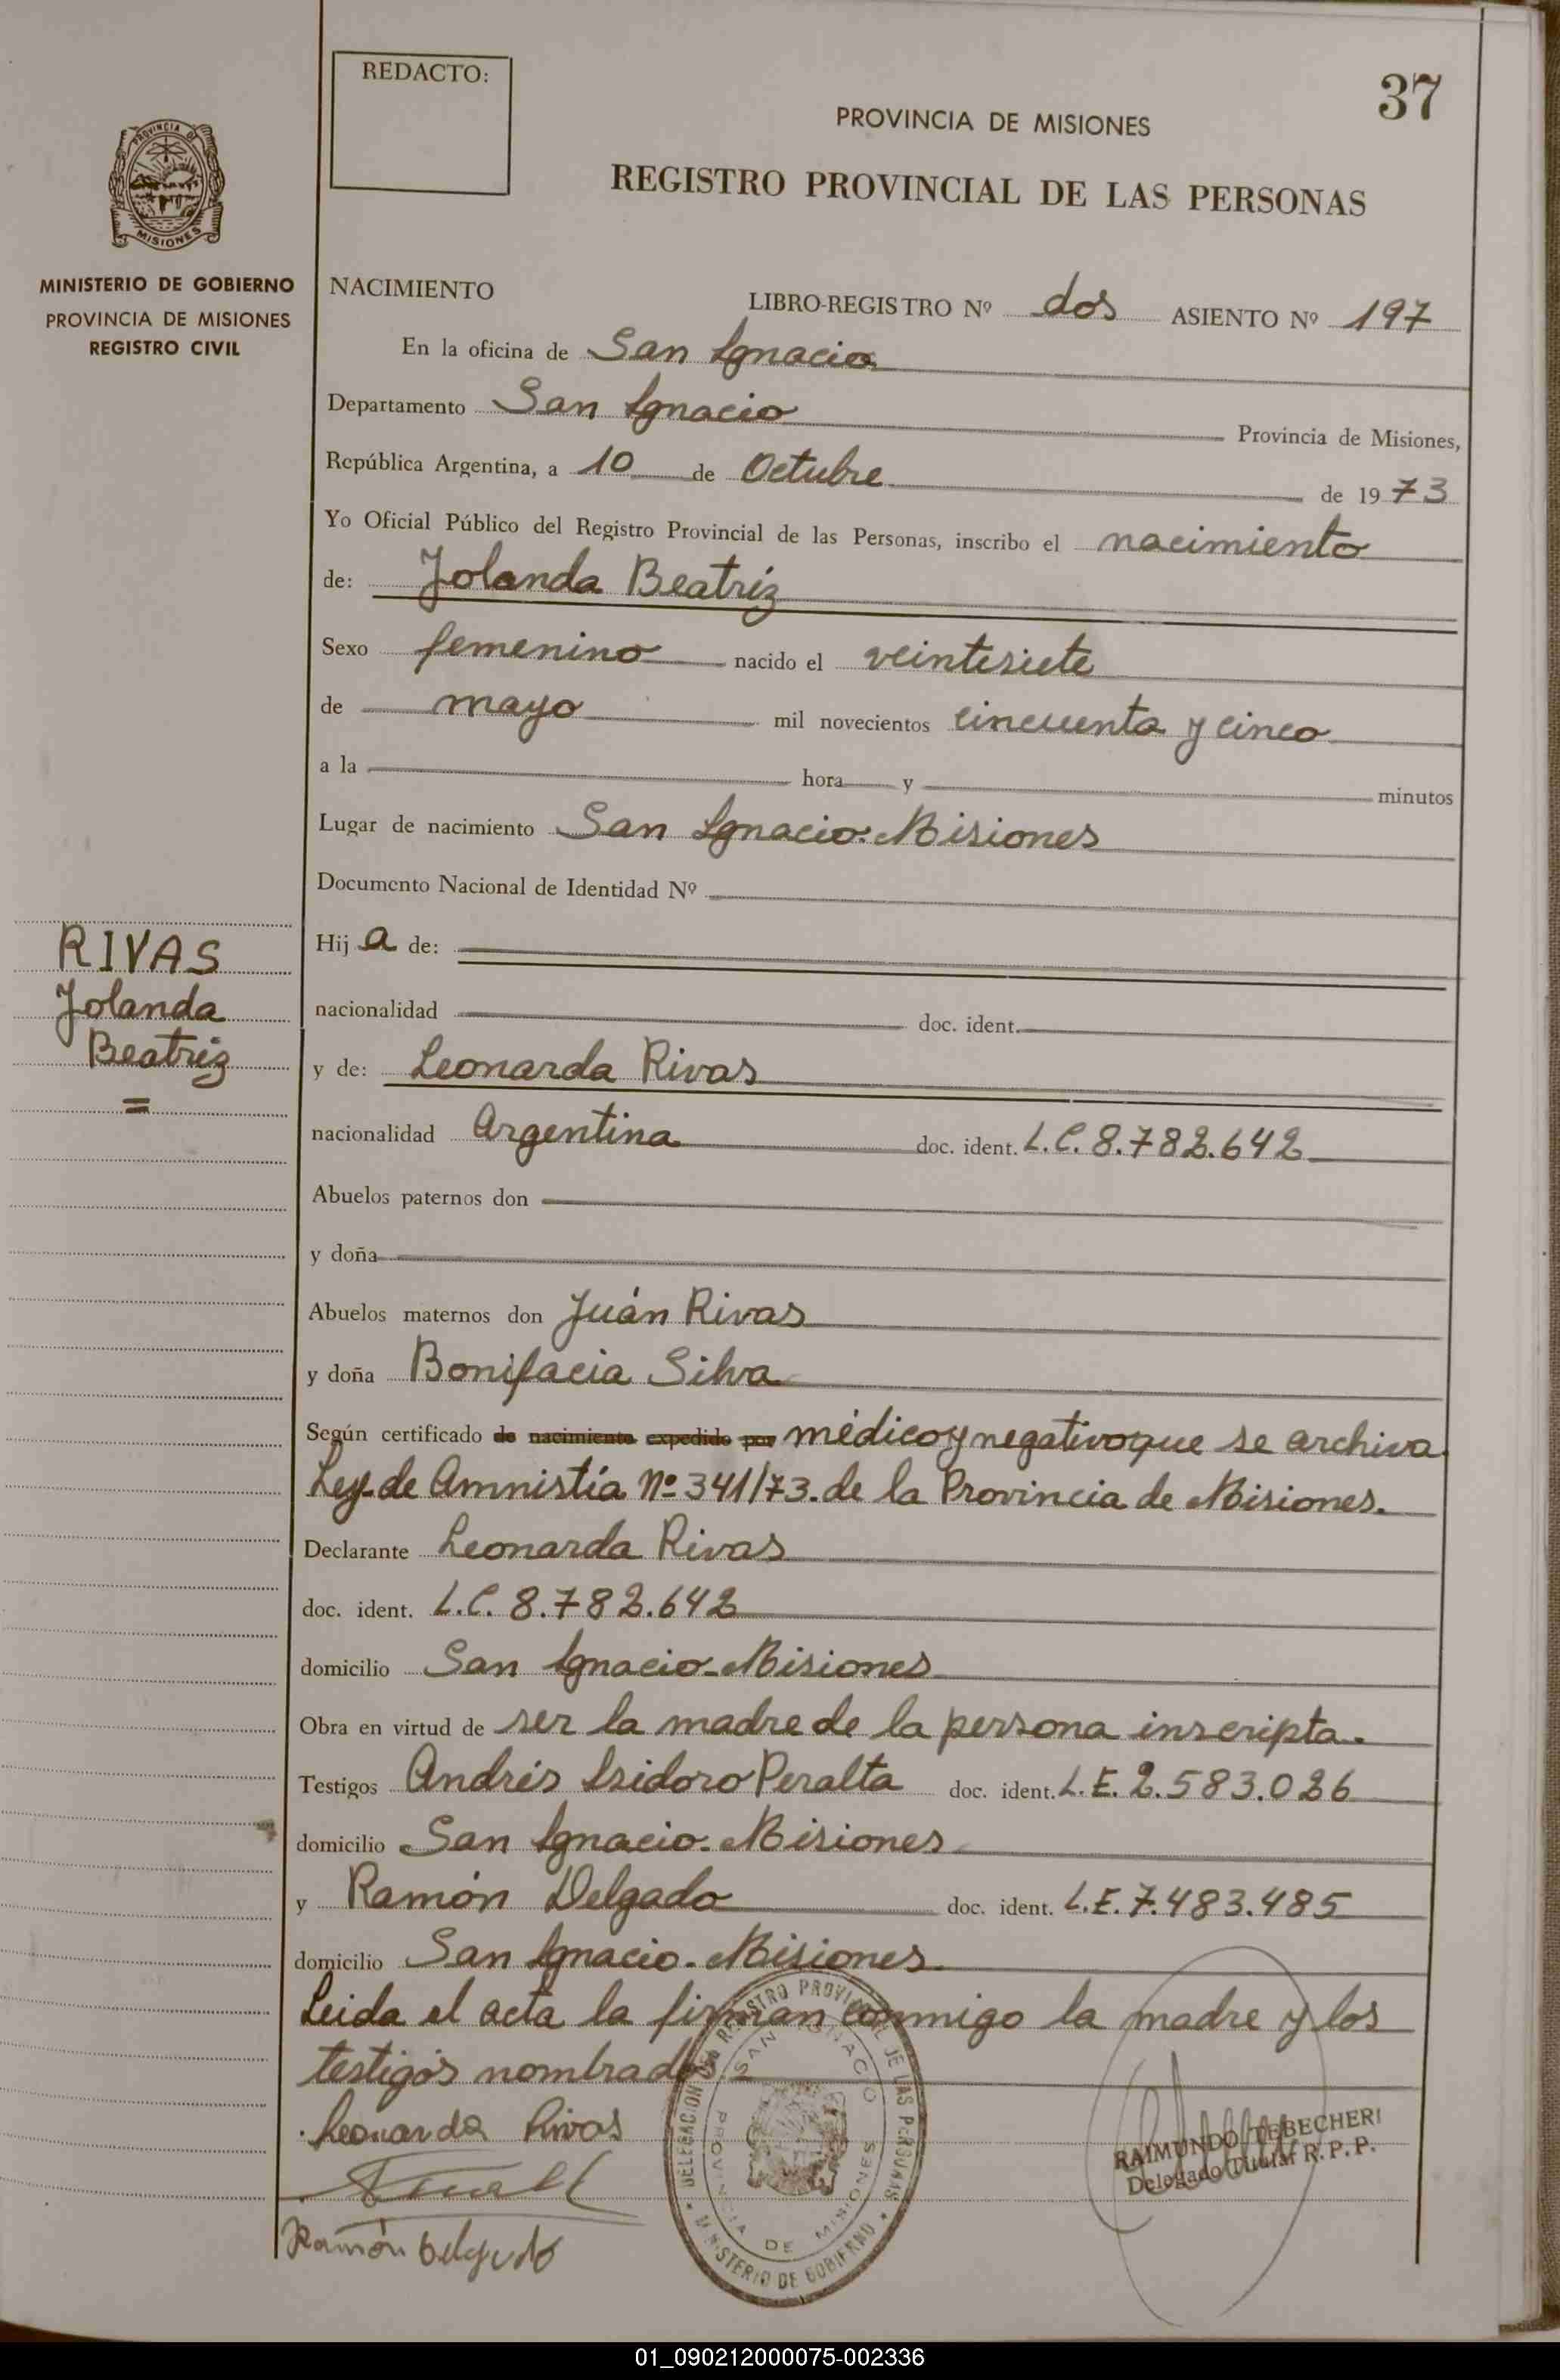 REDACTO:
37
PROVINCIA DE MISIONES
REGISTRO PROVINCIAL DE LAS PERSONAS
PROVINCIA DE
MISIONES
MINISTERIO DE GOBIERNO
PROVINCIA DE MISIONES
REGISTRO CIVIL
NACIMIENTO LIBRO-REGISTRO Nº dos ASIENTO Nº 197
En la oficina de San Ignacio
Departamento San Ignacio Provincia de Misiones,
República Argentina, a 10 de Octubre de 1973
Yo Oficial Público del Registro Provincial de las Personas, inscribo el nacimiento
de: Jolanda Beatríz
Sexo femenino nacido el veintisiete
de mayo mil novecientos cincuenta y cinco
a la hora y minutos
Lugar de nacimiento San Ignacio. Misiones
Documento Nacional de Identidad Nº
Hij a de:
nacionalidad doc. ident.
y de: Leonarda Rivas
nacionalidad Argentina doc. ident. L.C. 8.782.642
Abuelos paternos don
y doña
Abuelos maternos don Juán Rivas
y doña Bonifacia Silva
Según certificado de nacimiento expedido por médico y negativo que se archiva.
Ley de Amnistía Nº 341/73. de la Provincia de Misiones.
Declarante Leonarda Rivas
doc. ident. L.C. 8.782.642
domicilio San Ignacio - Misiones
Obra en virtud de ser la madre de la persona inscripta.
Testigos Andrés Isidoro Peralta doc. ident. L.E. 2.583.026
domicilio San Ignacio. Misiones
y Ramón Delgado doc. ident. L.E. 7.483.485
domicilio San Ignacio. Misiones
Leida el acta la firman conmigo la madre y los
testigos nombrados
Leonarda Rivas
Ramón Delgado
RIVAS
Jolanda
Beatriz
=
DELEGACION DEL REGISTRO PROVINCIAL DE LAS PERSONAS
SAN IGNACIO
PROVINCIA DE MISIONES
MINISTERIO DE GOBIERNO
RAIMUNDO TEBECHERI
Delegado Titular R. P. P.
01_090212000075-002336